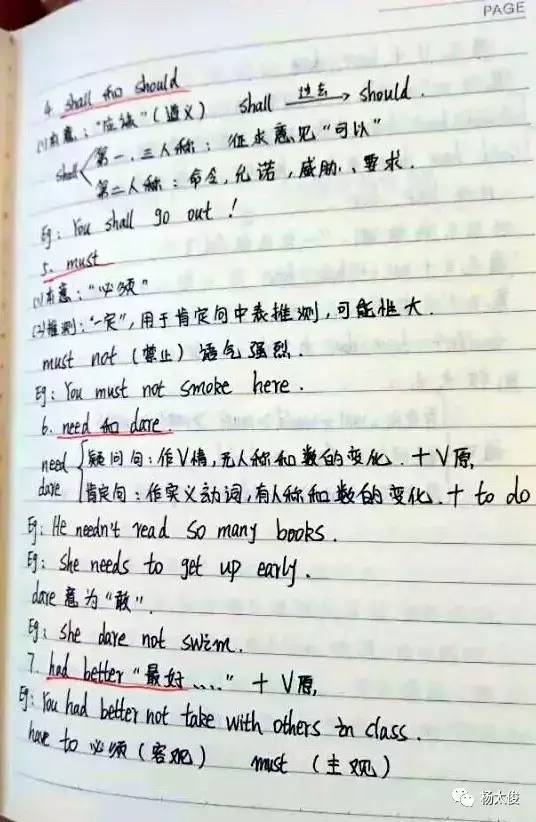 PAGE
4. shall 和 should
(1)本意："应该"(道义) shall 过去 should.
shall 第一、三人称：征求意见"可以"
第二人称：命令,允诺,威胁、要求.
Eg: You shall go out !
5. must
(1)本意："必须"
(2)推测："一定",用于肯定句中表推测,可能性大.
must not (禁止) 语气强烈.
Eg: You must not smoke here.
6. need 和 dare
need 疑问句：作V情,无人称和数的变化. + V原,
dare 肯定句：作实义动词,有人称和数的变化. + to do
Eg: He needn't read so many books.
Eg: She needs to get up early.
dare 意为"敢".
Eg: She dare not swim.
7. had better "最好...." + V原,
Eg: You had better not take with others in class.
have to 必须 (客观) must (主观)
杨太俊